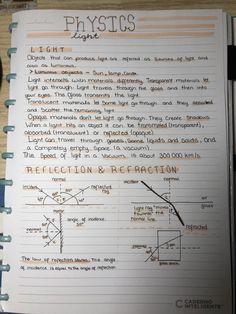 PHYSICS
light
LIGHT
Objects that can produce light are referred as sources of light and
also as luminous.
> Luminous objects = Sun, lamp, candle
Light interacts with materials differently. Transparent materials let
light go through. Light travels through the glass and then into
your eyes. The Glass transmits the light.
Translucent materials let some light go through and they
and Scatter the remaining light.
Opaque materials don't let light go through. They create Shadows
When a light hits an object it can be transmitted (transparent),
absorbed (translucent) or reflected (opaque)
Light can travel through gases, some liquids and solids, and
a completely empty Space (a vacuum).
The Speed of light in a Vacuum is about 300 000 km/s.
REFLECTION & REFRACTION
incident
reflected
ray
mirror
angle of incidence
light ray moves
towards the
normal line
The law of reflection states: The angle
of incidence is equal to the angle of reflection
CADERNO
INTELIGENTE